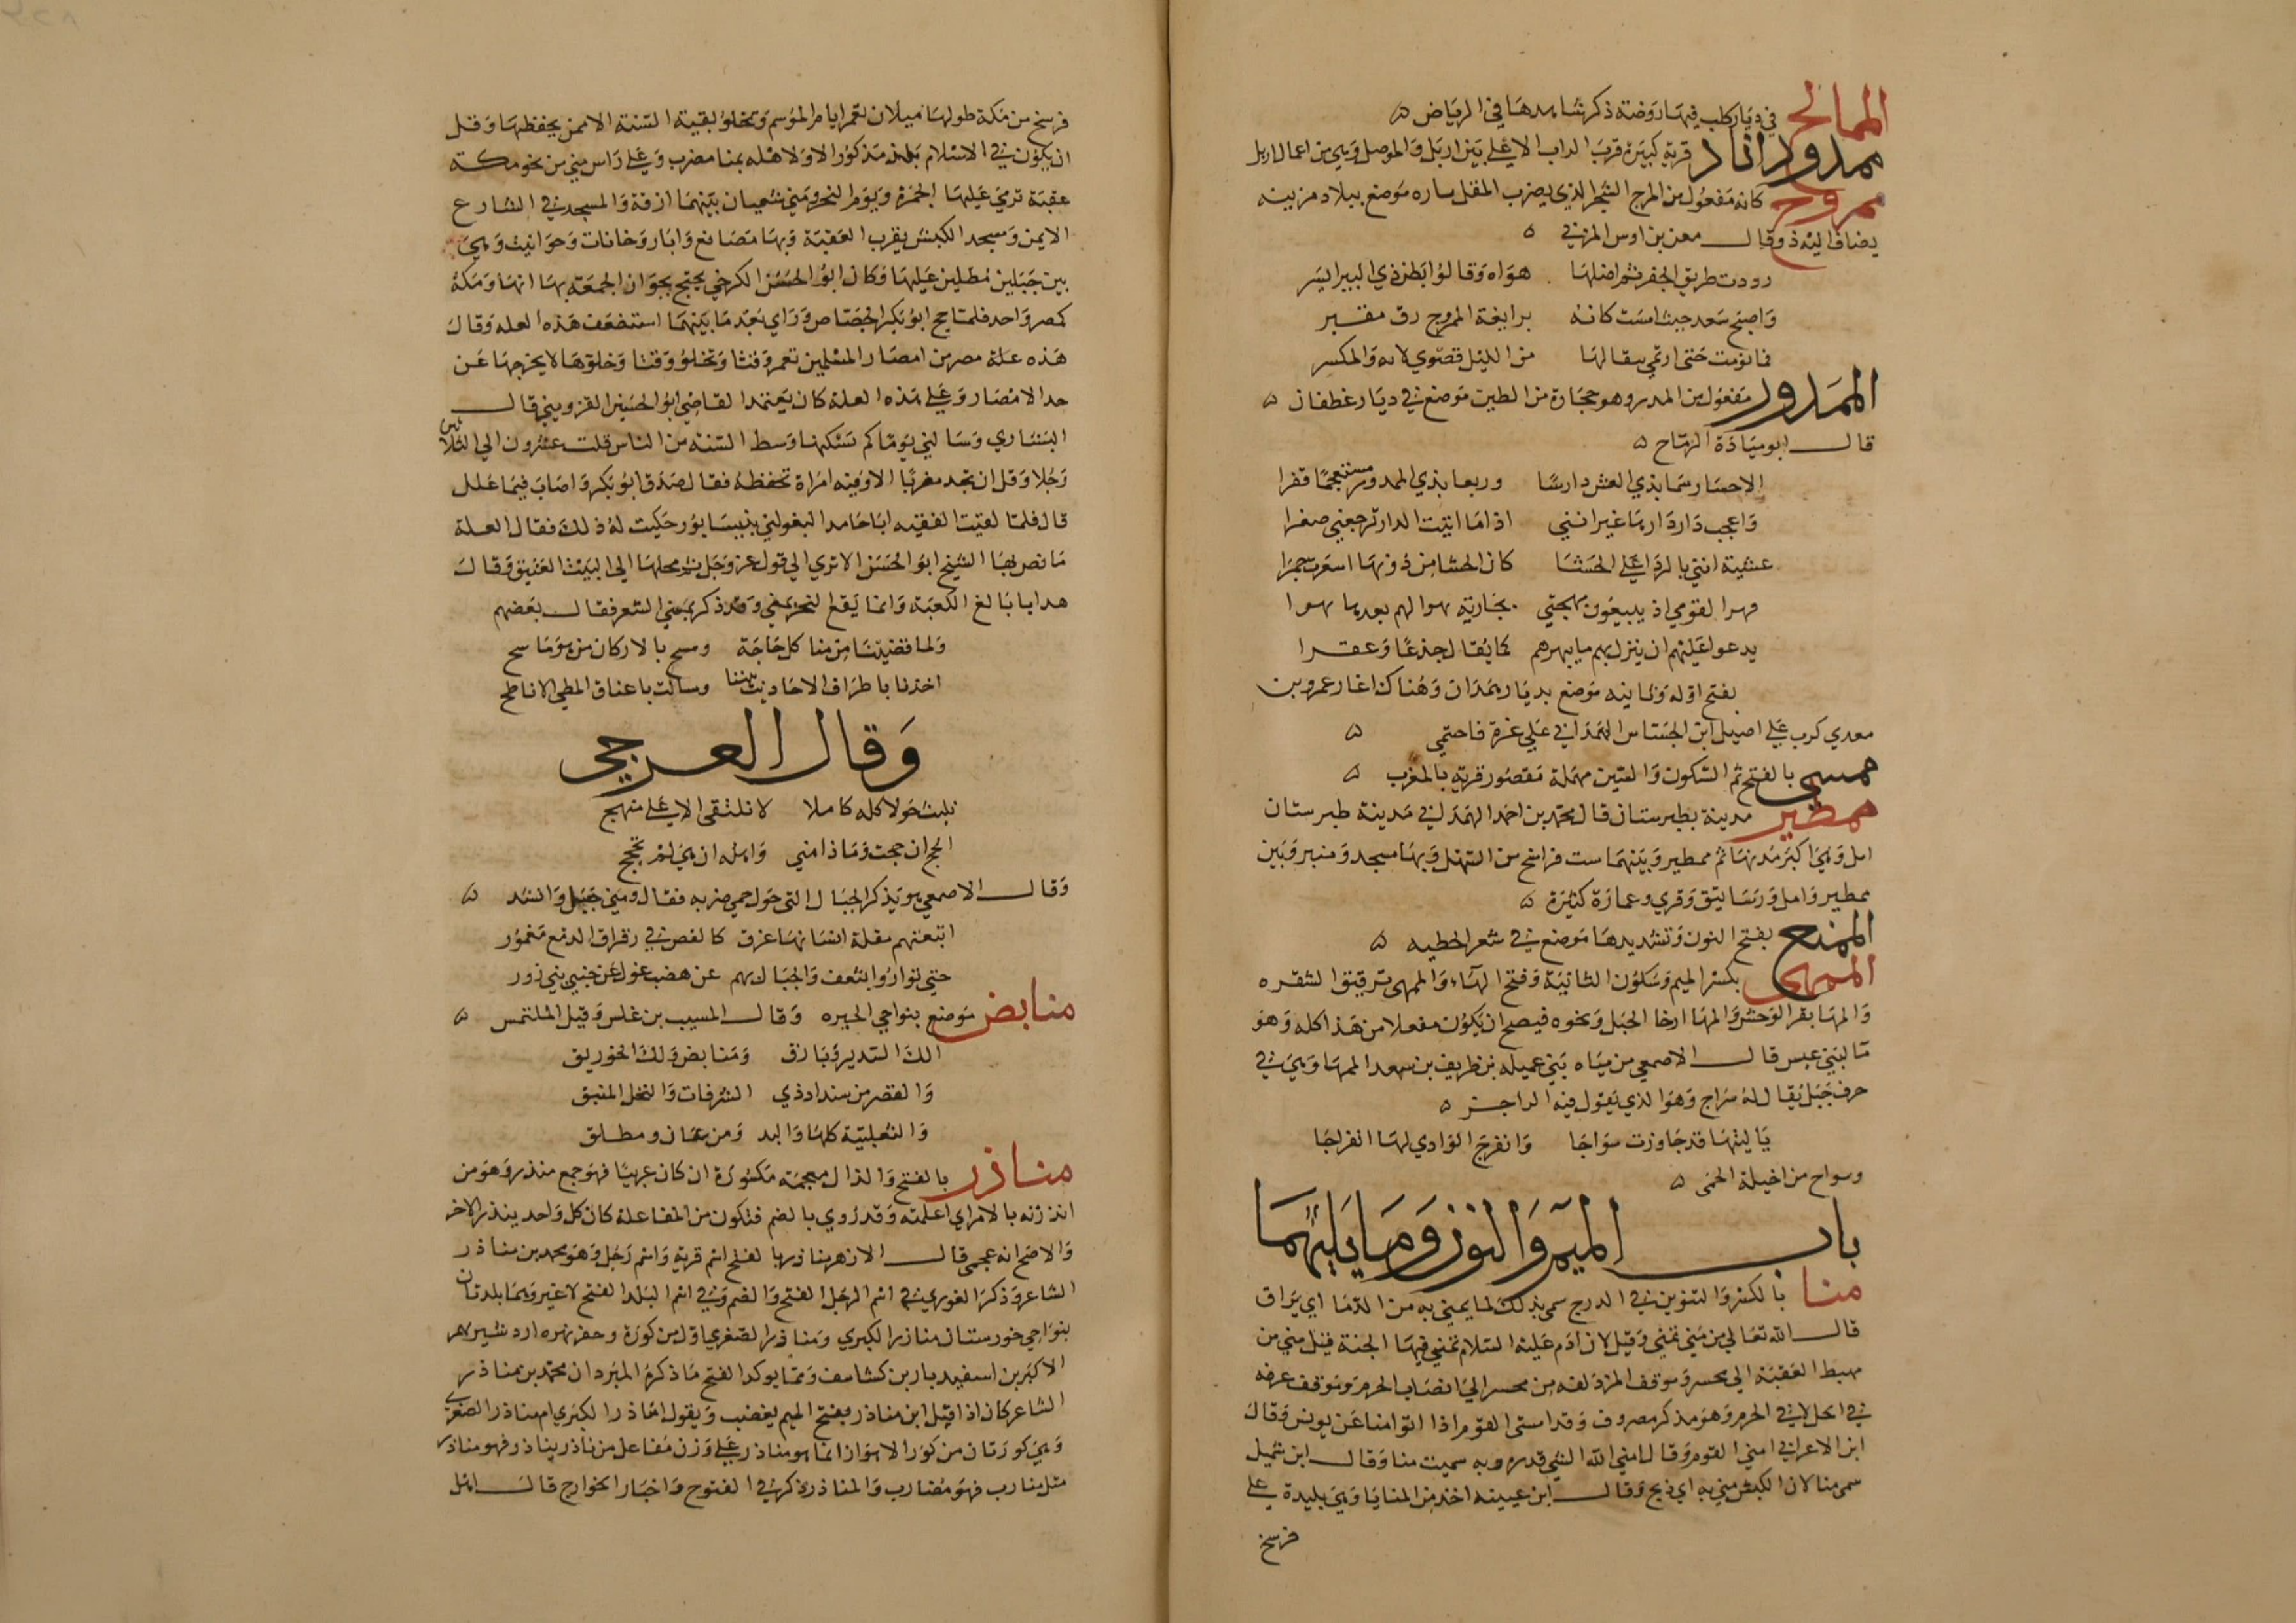 الممالح في ديار كلب فيها روضة ذكر شاهدها في الرياض ه
ممدوداناد قرية كبيرة قرب الزاب الاعلى بين اربل والموصل وهي من اعمال اربل
ممروح كانه مفعول من المرخ الشجر الذي يضرب المثل بناره موضع ببلاد مزينه
يضاف اليه ذو وقال معن بن اوس المزني ه
رودت طريق الجفر ثم اضلها هواه وقالوا بطن ذي البير ايسر
واصبح سعد حيث امست كانه برابغة الممروح زق مقير
فما نومت حتى ارتمي بنقالها من الليل قصوى لابه والمكسر
الممدور مفعول من المدر وهو حجارة من الطين موضع في ديار غطفان ه
قال ابو ميادة الرماح ه
الا حييا رسما بذي العش دارسا وربعا بذي الممدور مستعجما قفرا
واعجب دار دارها غير انني اذا ما اتيت الدار ترجعني صفرا
عشية اثني بالردا على الحشا كان الحشا من دونها اسعرت جمرا
فبهرا لقومي اذ يبيعون مهجتي بجارية بهرا لهم بعدها بهرا
يدعو عليهم ان ينزل بهم ما يبهرهم كما يقال جذعا وعقرا
بفتح اوله وثانيه موضع بديار همدان وهناك اغار عمرو بن
معدي كرب على اصيل ابن الجساس الهمداني على غزة فاحتمى ه
ممسى بالفتح ثم السكون والسين مهملة مقصور قرية بالمغرب ه
ممطير مدينة بطبرستان قال محمد بن احمد الهمداني مدينة طبرستان
امل وهي اكبر مدنها ثم ممطير وبينهما ست فراسخ من السهل وبها مسجد ومنبر وبين
ممطير وامل ورساتيق وقرى وعمارة كثيرة ه
الممنح بفتح النون وتشديدها موضع في شعر الحطيه ه
الممهى بكسر الميم وسكون الثانية وفتح الهاء والممهى ترقيق الشفره
والمها بقر الوحش والمها ارخا الحبل ونحوه فيصح ان يكون مفعلا من هذا كله وهو
ما لبني عبس قال الاصمعي من مياه بني عميله بن طريف بن سعد الممها وهي في
حرف جبل يقال له سواج وهو الذي يقول فيه الراجز ه
يا ليتها قد جاوزت سواجا وانفرج الوادي لها انفراجا
وسواج من اخيلة الحمى ه
باب الميم والنون وما يليهما
منا بالكسر والتنوين في الدرج سمي بذلك لما يمنى به من الدما اي يراق
قال الله تعالى من مني تمنى وقيل لان ادم عليه السلام تمنى فيها الجنة قيل منى من
مهبط العقبة الى محسر وموقف المزدلفه من محسر الى انصاب الحرم وموقف عرفه
في الحل لا في الحرم وهو مذكر مصروف وقد امتنى القوم اذا اتوا منا عن يونس وقال
ابن الاعرابي امنى القوم وقال منى الله الشي قدره وبه سميت منا وقال ابن شميل
سمي منا لان الكبش مني به اي ذبح وقال ابن عيينه اخذ من المنايا وهي بليدة على
فرسخ
فرسخ من مكة طولها ميلان تعمر ايام الموسم وتخلو بقية السنة الا ممن يحفظها وقل
ان يكون في الاسلام بلد مذكور الا ولاهله بمنا مضرب وعلى راس منى من نحو مكة
عقبة ترمى عليها الجمرة ويوم النحر ومنى شعبان بينهما ازقة والمسجد في الشارع
الايمن ومسجد الكبش بقرب العقبة وبها مصانع وابار وخانات وحوانيت وهي
بين جبلين مطلين عليها وكان ابو الحسن الكرخي يحتج بجواز الجمعة بها انها ومكة
كمصر واحد فلما حج ابو بكر الجصاص ورأى بعد ما بينهما استضعف هذه العله وقال
هذه علة مصر من امصار المسلمين تعمر وقتا وتخلو وقتا وخلوها لا يخرجها عن
حد الامصار وعلى هذه العلة كان يعتمد القاضي ابو الحسين القزويني قال
البشاري وسالني يوما كم يسكنها وسط السنة من الناس قلت عشرون الى الثلاثين
رجلا وقل ان تجد مضربا الا وفيه امراة تحفظه فقال صدق ابو بكر واصاب فيما علل
قال فلما لقيت الفقيه ابا حامد البغولني بنيسابور حكيت له ذلك فقال العلة
ما نص بها الشيخ ابو الحسن الا ترى الى قول عز وجل ثم محلها الى البيت العتيق وقال
هديا بالغ الكعبة وانما يقع النحر بمنى وقد ذكر بمنى الشعر فقال بعضهم
ولما قضينا من منا كل حاجة ومسح بالاركان من هو ماسح
اخذنا باطراف الاحاديث بيننا وسالت باعناق المطي الاباطح
وقال العرجي
نلبث حولا كله كاملا لا نلتقى الا على منهج
الحج ان حجت وماذا منى واهله ان هي لم تحجج
وقال الاصمعي وهو يذكر الجبال التى حول حمى ضريه فقال ومنى جبل وانشد ه
اتبعتهم مقلة انسانها غرق كالفص في رقراق الدمع مغمور
حتى تواروا بشعف والجبال بهم عن هضب غول عن جنبي منى زور
منابض موضع بنواحي الحيره وقال المسيب بن علس وقيل المتلمس ه
الك السدير وبارق ومنابض ولك الخورنق
والقصر من سنداد ذي الشرفات والنخل المنبق
والثعلبية كلها والبد ومن عان ومطلق
مناذر بالفتح والذال معجمه مكسورة ان كان عربيا فهو جمع منذر وهو من
انذرته بالامر اي اعلمته وقد روي بالضم فتكون من المفاعلة كان كل واحد ينذر الاخر
والاصح انه عجمى قال الازهري مناذر بالفتح اسم قرية واسم رجل وهو محمد بن مناذر
الشاعر وذكر الغوري في اسم الرجل الفتح والضم وفي اسم البلد الفتح لا غير وهما بلدتان
بنواحي خورستان مناذر الكبرى ومناذر الصغرى اول من كوره وحفر نهره اردشير بهمن
الاكبر بن اسفيديار بن كشاسف ومما يوكد الفتح ما ذكره المبرد ان محمد بن مناذر
الشاعر كان اذا قيل ابن مناذر بفتح الميم يغضب ويقول امناذر الكبرى ام مناذر الصغرى
وهي كورتان من كور الاهواز انما هو مناذر على وزن مفاعل من ناذر يناذر فهو مناذر
مثل ضارب فهو مضارب والمناذر ذكر في الفتوح واخبار الخوارج قال اهل